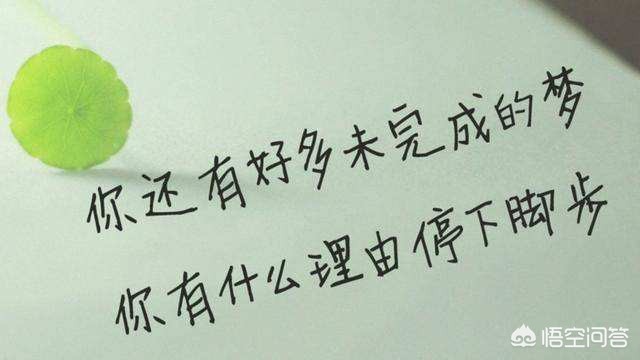 你还有好多未完成的梦
你有什么理由停下脚步
悟空问答